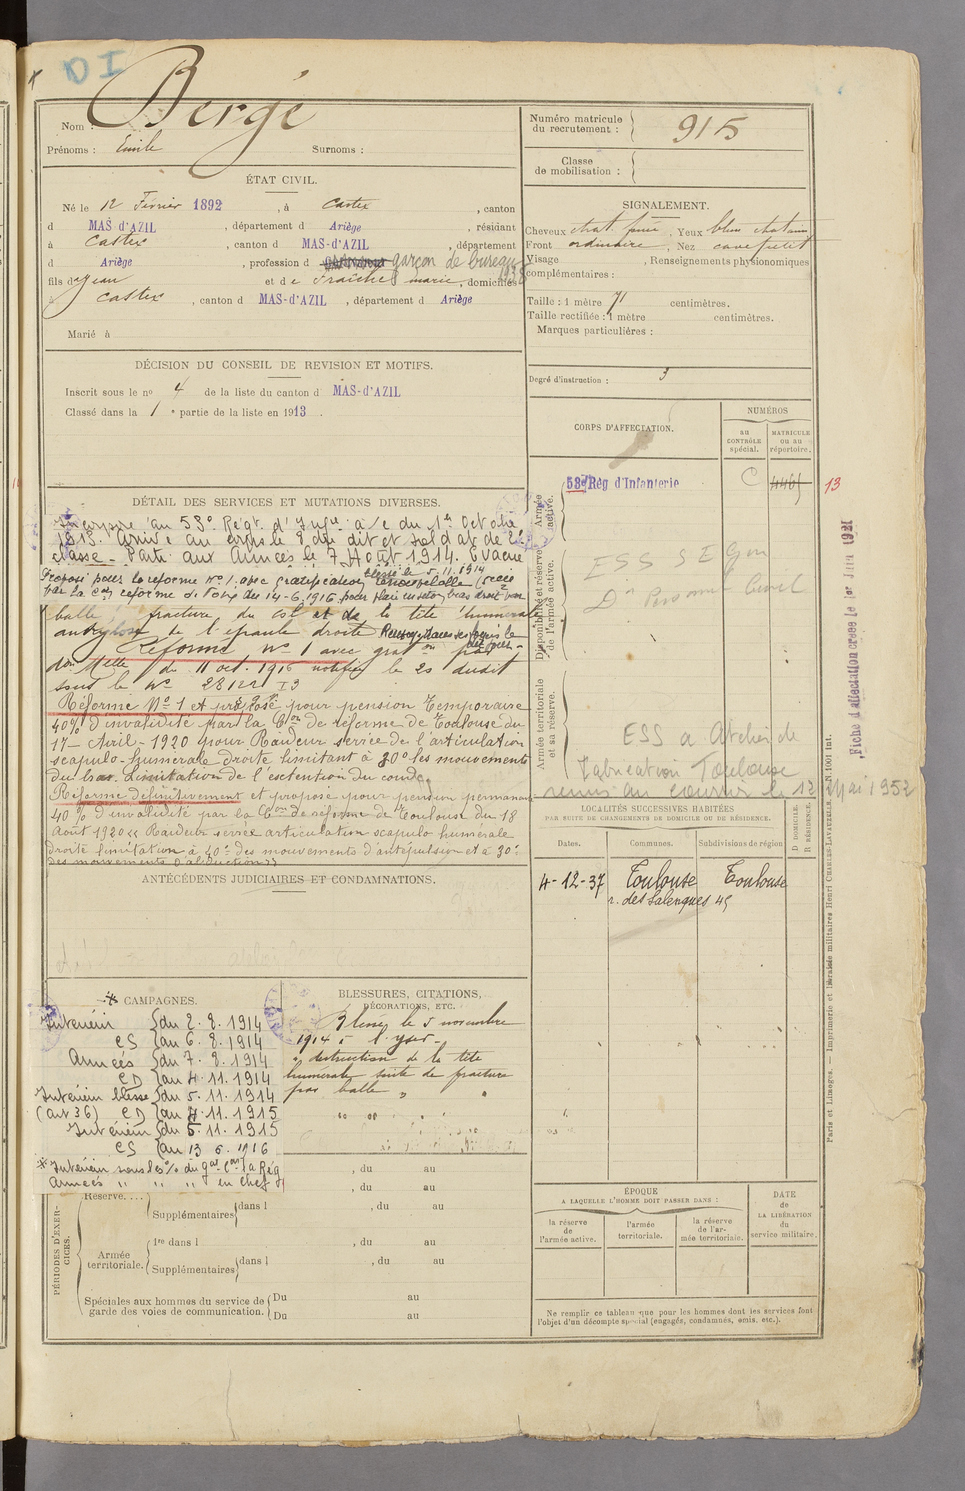 DI
Bergé
Nom :
Prénoms : Emile Surnoms :
Numéro matricule du recrutement : 915
Classe de mobilisation :
ÉTAT CIVIL.
Né le 12 Février 1892, à Castex, canton
d MAS-d'AZIL, département d Ariège, résidant
à Castex, canton d MAS-d'AZIL, département
d Ariège, profession d garçon de bureau 1938
fils d Jean et de Fraîche marie, domiciliés
à Castex, canton d MAS-d'AZIL, département d Ariège
Marié à
SIGNALEMENT.
Cheveux chat. foncé, Yeux bleu chatain
Front ordinaire, Nez cave petit
Visage , Renseignements physionomiques
complémentaires :
Taille : 1 mètre 71 centimètres.
Taille rectifiée : 1 mètre centimètres.
Marques particulières :
Degré d'instruction : 3
DÉCISION DU CONSEIL DE REVISION ET MOTIFS.
Inscrit sous le no 4 de la liste du canton d MAS-d'AZIL
Classé dans la 1 e partie de la liste en 1913.
CORPS D'AFFECTATION.
NUMÉROS
au CONTRÔLE spécial.
MATRICULE ou au répertoire.
Armée active.
58e Rég d'Infanterie C 4465 13
Disponibilité et réserve de l'armée active.
ESS SE Gen
Don Personnel Civil
Armée territoriale et sa réserve.
ESS a Atelier de
fabrication Toulouse
remis au courrier le 12 Mai 1952
Fiche d'affectation créée le 1er Juin 1921
DÉTAIL DES SERVICES ET MUTATIONS DIVERSES.
Incorporé au 58e Régt d'Infie à/c du 1er Octobre
1913. Arrivé au corps le 8 du dit et soldat de 2e
classe - Parti aux Armées le 7 Août 1914. Evacué
blessé le 5.11.1914
Proposé pour la réforme no 1 avec gratification renouvelable
par la Con réforme de Foix du 14-6-1916 pour plaie en séton bras droit par
balle fracture du col et de la tête humérale
ankylose de l'épaule droite Renvoyé dans ses foyers le dit jour -
Réformé No 1 avec graton par
don Melle du 11 oct. 1916 notifiée le 20 dudit
sous le No 28122 I3
Réforme No 1 et proposé pour pension temporaire
40% d'invalidité par la Con de réforme de Toulouse du
17 - Avril - 1920 pour Raideur serrée de l'articulation
scapulo-humérale droite limitant à 30° les mouvements
du bras. Limitation de l'extention du coude
Réforme définitivement et proposé pour pension permanent
40% d'invalidité par la Con de réforme de Toulouse du 18
Août 1920 « Raideur serrée articulation scapulo humérale
droite limitation à 40° des mouvements d'antépulsion et à 30°
des mouvements d'abduction »
LOCALITÉS SUCCESSIVES HABITÉES
PAR SUITE DE CHANGEMENTS DE DOMICILE OU DE RÉSIDENCE.
Dates. Communes. Subdivisions de région
D DOMICILE. R RÉSIDENCE.
4-12-37 Toulouse Toulouse
r. des Salenques 45
ANTÉCÉDENTS JUDICIAIRES ET CONDAMNATIONS.
* CAMPAGNES.
Intérieur du 2.8.1914
CS au 6.8.1914
Armées du 7.8.1914
CD au 4.11.1914
Intérieur blessé du 5.11.1914
(art 36) CD au 4.11.1915
Intérieur du 5.11.1915
CS au 13 6. 1916
* Intérieur sous les % du gal Con la Rég
Armées " " " en chef
BLESSURES, CITATIONS, DÉCORATIONS, ETC.
Blessé le 5 novembre
1914 à l'Yser -
" destruction de la tête
humérale suite de fracture
par balle "
PÉRIODES D'EXERCICES.
, du au
, du au
Réserve....
Supplémentaires dans l , du au
Armée territoriale.
1re dans l , du au
Supplémentaires dans l , du au
Spéciales aux hommes du service de garde des voies de communication.
Du au
Du au
ÉPOQUE
A LAQUELLE L'HOMME DOIT PASSER DANS :
la réserve de l'armée active.
l'armée territoriale.
la réserve de l'armée territoriale.
DATE de LA LIBÉRATION du service militaire.
Ne remplir ce tableau que pour les hommes dont les services font
l'objet d'un décompte spécial (engagés, condamnés, omis, etc.).
Paris et Limoges. — Imprimerie et librairie militaires Henri CHARLES-LAVAUZELLE. N. 1001 int.